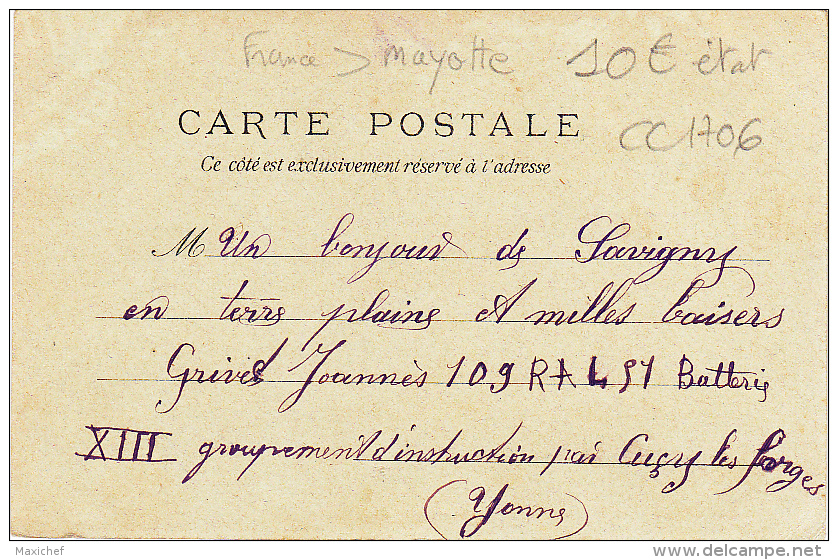 France > Mayotte 10€ état
CARTE POSTALE
CC1706
Ce côté est exclusivement réservé à l'adresse
M Un bonjour de Savigny
en terre plaine et milles baisers
Grivel Joannès 109 RAL 51 Batterie
XIII groupement d'instruction par Cuçy les forges
(Yonne)
Maxichef
www.delcampe.net